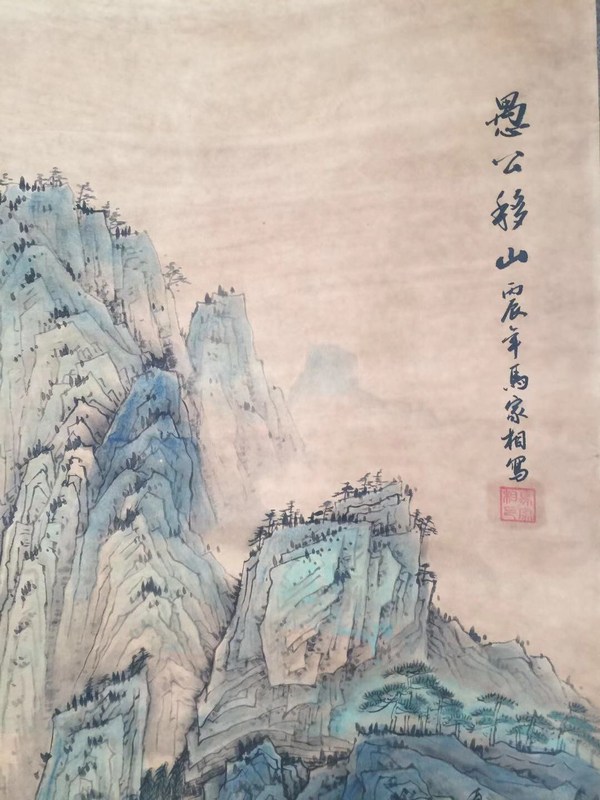 愚公移山 丙辰年馬家相寫